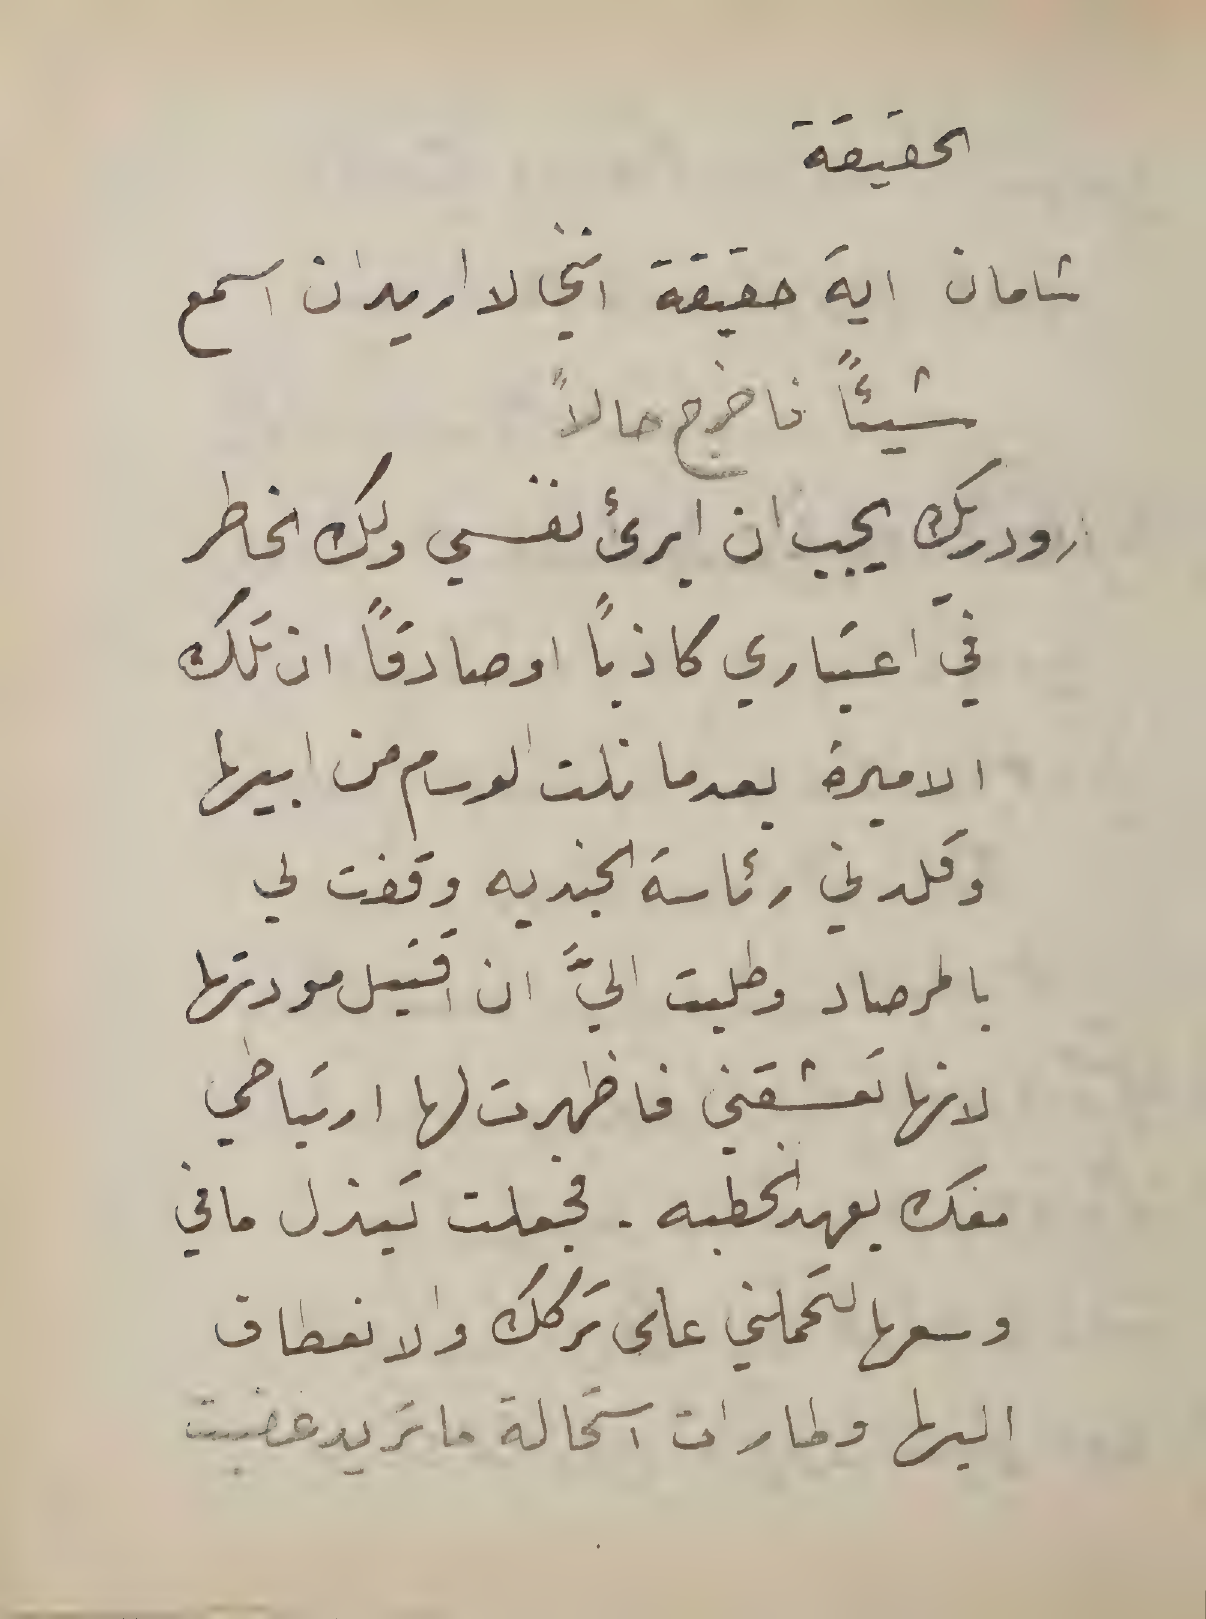 الحقيقة
شامان اية حقيقة انني لا اريد ان اسمع
شيئاً فاخرج حالاً
رودريك يجب ان ابرئ نفسي ولك الخاطر
في اعتباري كاذباً او صادقاً ان تلك
الاميرة بعدما نلت الوسام من ابيها
وقلدني رئاسة الجنديه وقفت لي
بالمرصاد وطلبت اليَّ ان اقبل مودتها
لانها تعشقني فاظهرت لها ارتباطي
معك بعهد الخطبه . فجعلت تبذل ما في
وسعها لتحملني على تركك والانعطاف
اليها ولما رات استحالة ما تريد غضبت